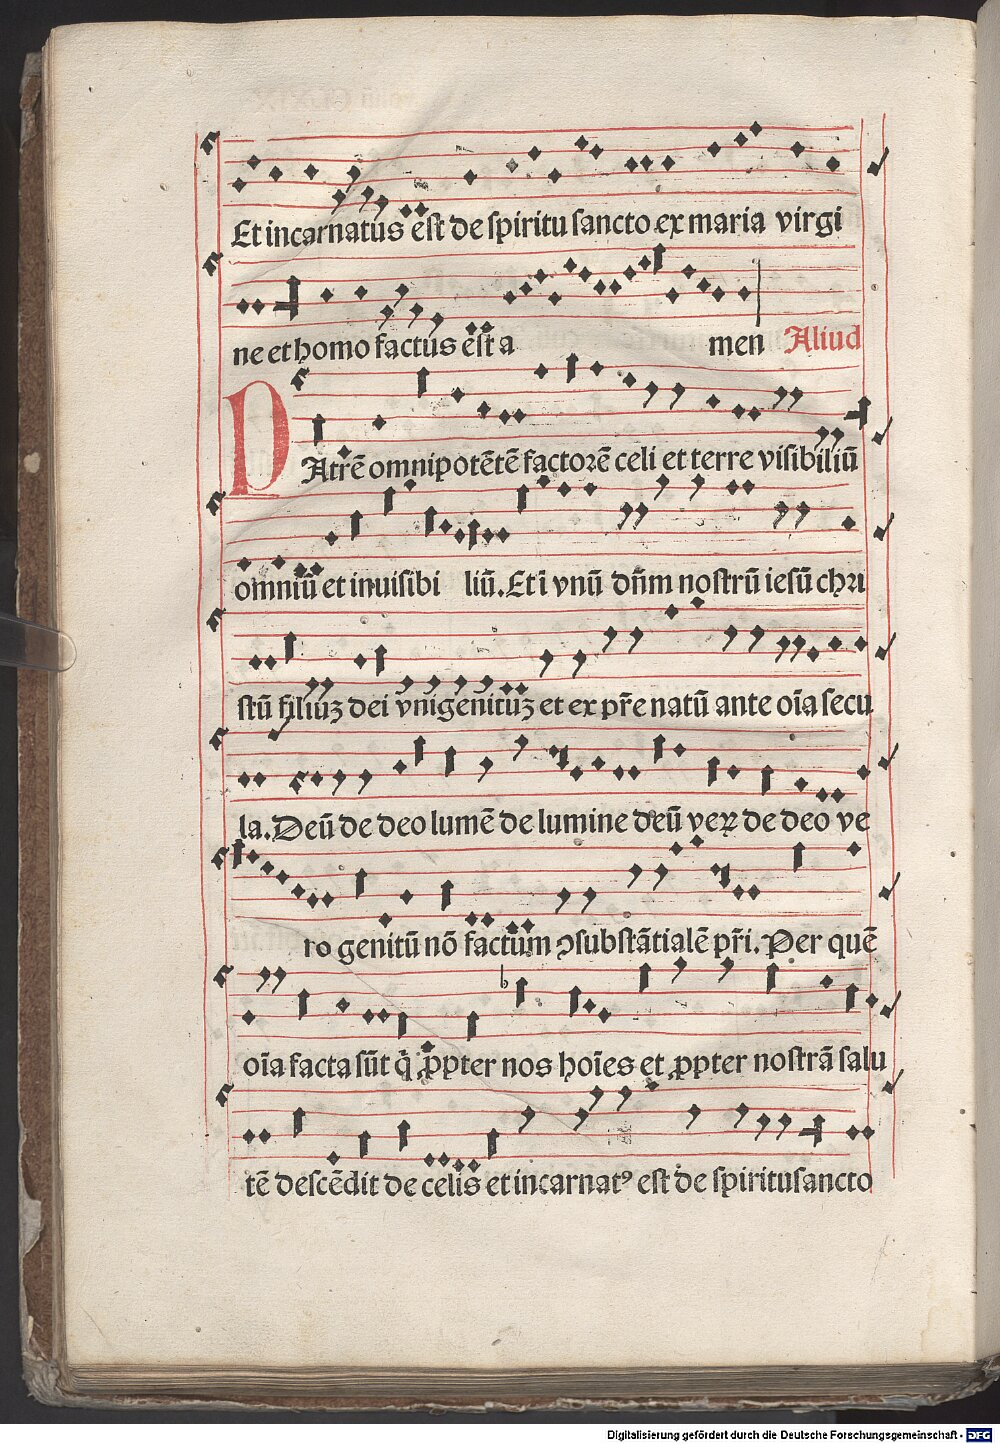 Et incarnatus est de spiritu sancto ex maria virgi
ne et homo factus est a men Aliud
PAtrē omnipotētē factorē celi et terre visibiliū
omniū et inuisibi liū. Et ī vnū dn̄m nostrū iesū chri
stū filiuꝫ dei vnigenituꝫ et ex pr̄e natū ante oīa secu
la. Deū de deo lumē de lumine deū veꝝ de deo ve
ro genitū nō factum ↄsubstātialē pr̄i. Per quē
oīa facta sūt q̄ ꝓpter nos hoīes et ꝓpter nostrā salu
tē descēdit de celis et incarnatꝰ est de spiritu sancto
Digitalisierung gefördert durch die Deutsche Forschungsgemeinschaft - DFG